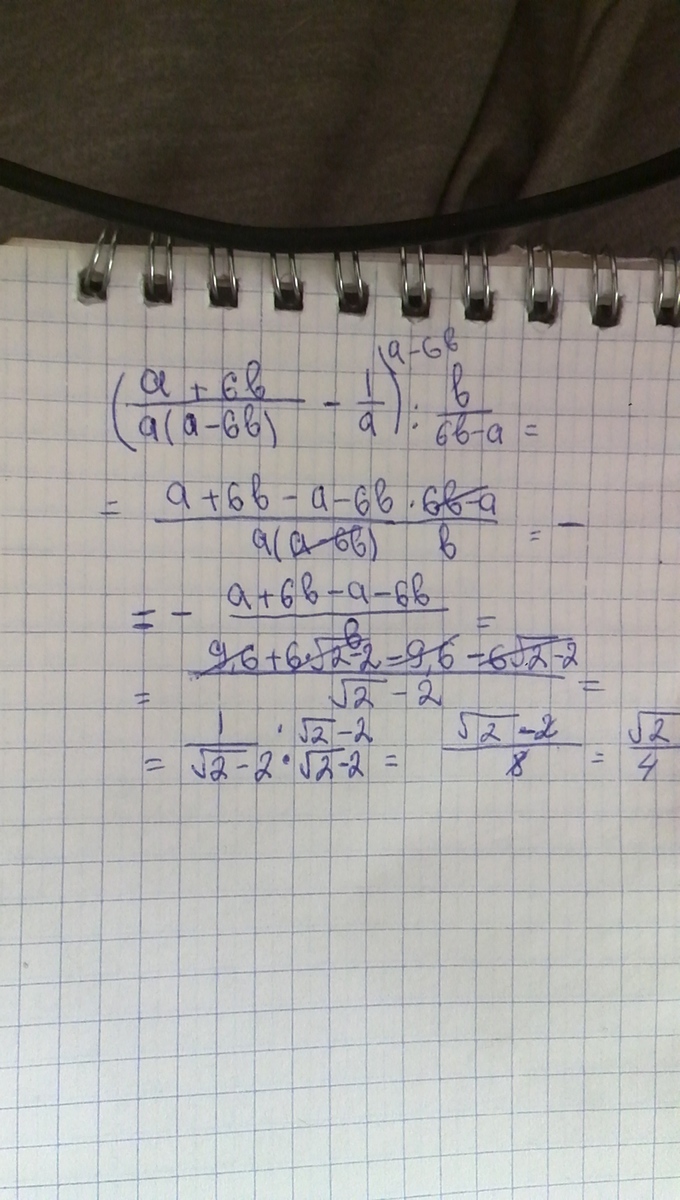 (a + 6b / a(a-6b) - 1/a)^(a-6b) : b / 6b-a =
= a+6b-a-6b · 6b-a / a(a-6b) b = -
= - a+6b-a-6b / b =
= 9,6+6√2-2-9,6-6√2-2 / √2-2 =
= 1 / √2-2 · √2-2 / √2-2 = √2-2 / 8 = √2 / 4